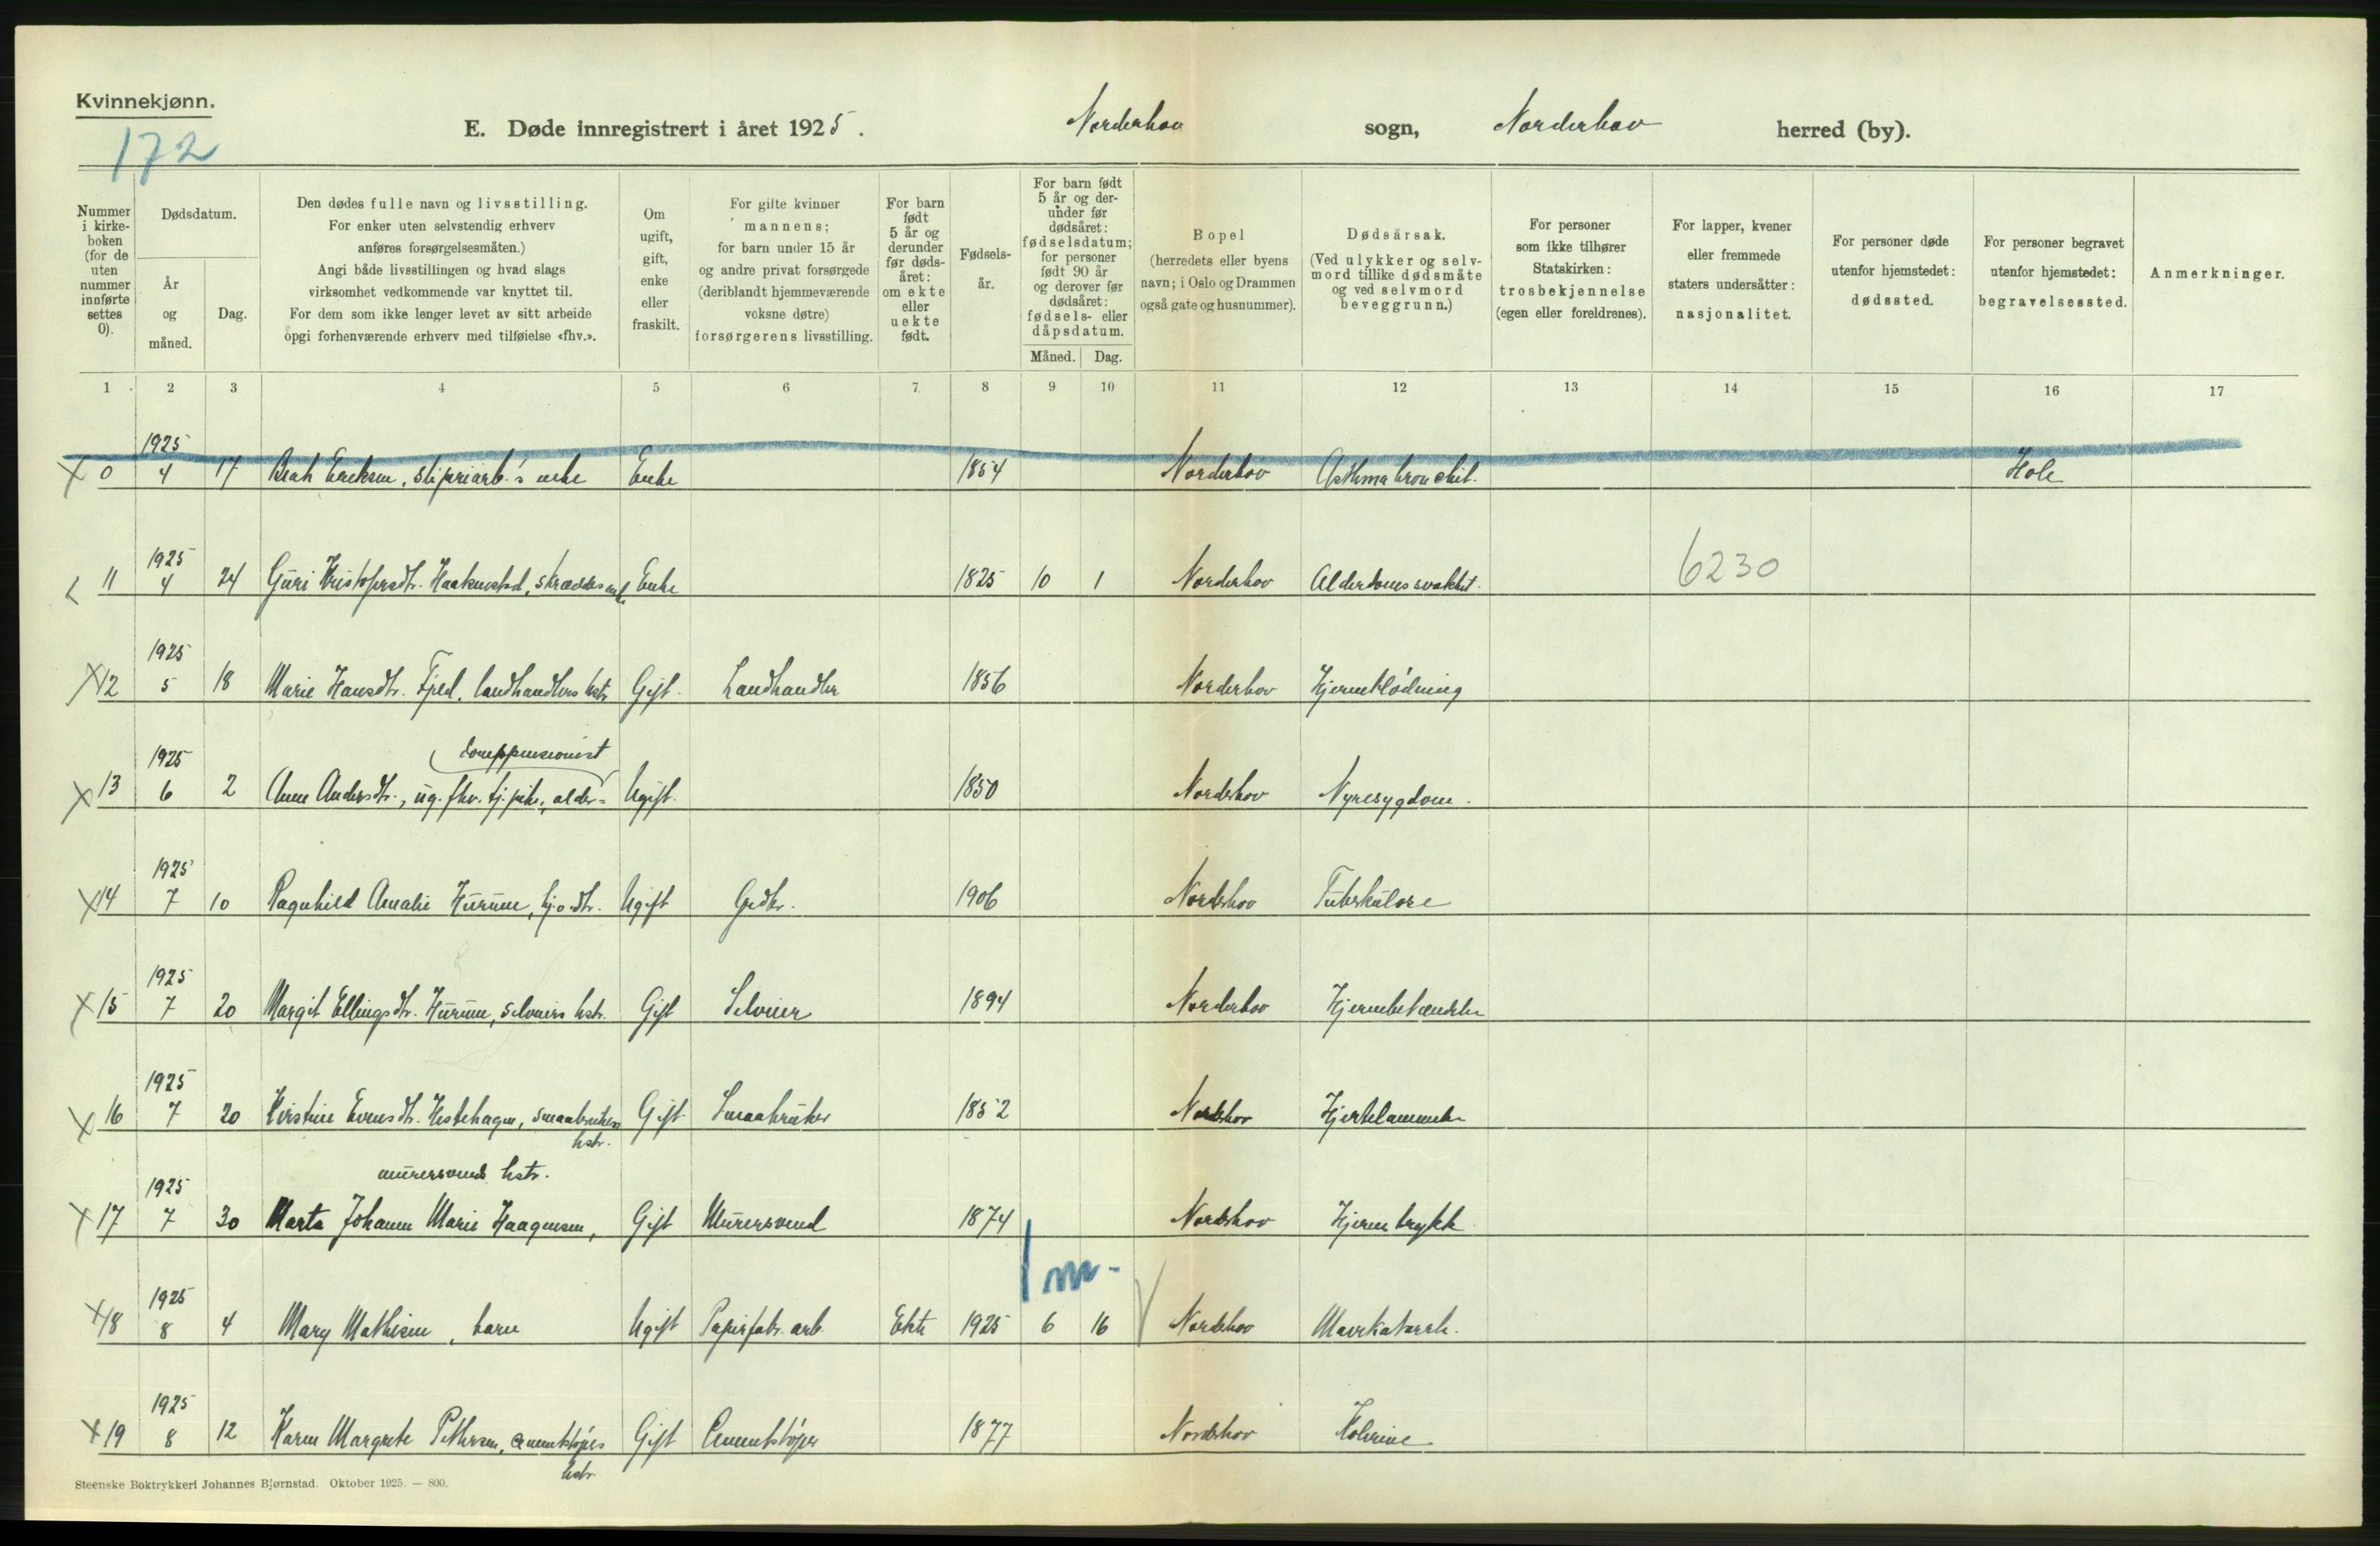 Kvinnekjønn.
172
E. Døde innregistrert i året 1925. Norderhov sogn, Norderhov herred (by).
Nummer i kirkeboken (for de uten nummer innførte settes 0).
Dødsdatum.
År og måned.
Dag.
Den dødes fulle navn og livsstilling.
For enker uten selvstendig erhverv
anføres forsørgelsesmåten.)
Angi både livsstillingen og hvad slags
virksomhet vedkommende var knyttet til.
For dem som ikke lenger levet av sitt arbeide
opgi forhenværende erhverv med tilføielse «fhv.».
Om ugift, gift, enke eller fraskilt.
For gifte kvinner
mannens;
for barn under 15 år
og andre privat forsørgede
(deriblandt hjemmeværende
voksne døtre)
forsørgerens livsstilling.
For barn født 5 år og derunder før dødsåret: om ekte eller uekte født.
Fødselsår.
For barn født 5 år og derunder før dødsåret: fødselsdatum; for personer født 90 år og derover før dødsåret: fødsels- eller dåpsdatum.
Måned. Dag.
Bopel
(herredets eller byens
navn; i Oslo og Drammen
også gate og husnummer).
Dødsårsak.
(Ved ulykker og selvmord tillike dødsmåte
og ved selvmord
beveggrunn.)
For personer
som ikke tilhører
Statskirken:
trosbekjennelse
(egen eller foreldrenes).
For lapper, kvener
eller fremmede
staters undersåtter:
nasjonalitet.
For personer døde
utenfor hjemstedet:
dødssted.
For personer begravet
utenfor hjemstedet:
begravelsessted.
Anmerkninger.
1 2 3 4 5 6 7 8 9 10 11 12 13 14 15 16 17
1925
x 0 4 17 Eriksen, Enke 1854 Norderhov Asthma bronchit. Hole
1925
11 4 24 Guri Kristofersdtr. Enke 1825 10 1 Norderhov Alderdomssvakhet. 6230
1925
x 12 5 18 Marie Hansdtr. Fjeld, landhandlers hstr. Gift. Landhandler 1856 Norderhov Hjerneblødning
domspensionist
1925
x 13 6 2 Anne Andersdtr., ug. fhv. tj.pike, alder= Ugift. 1850 Norderhov Nyresygdom.
1925
x 14 7 10 Ragnhild Amalie Hurum, Ugift Gdbr. 1906 Norderhov Tuberkulose
1925
x 15 7 20 Margit Ellingsdtr. Hurum, selveiers hstr. Gift Selveier 1894 Norderhov Hjernebetændelse
1925
x 16 7 20 Kirstine Evensdtr. Hestehagen, smaabrukers Gift Smaabruker 1852 Norderhov Hjertelammelse
hstr.
murersvends hstr.
1925
x 17 7 30 Marta Johanne Marie Haagensen, Gift Murersvend 1874 Norderhov Hjernetrykk
1 m-
1925
x 18 8 4 Mary Mathisen, barn Ugift Papirfabr. arb. Ekte 1925 6 16 Norderhov Mavekatarrh.
1925
x 19 8 12 Karen Margrete Pettersen, cementstøpers Gift Cementstøper 1877 Norderhov
hstr.
Steenske Boktrykkeri Johannes Bjørnstad. Oktober 1925. — 800.